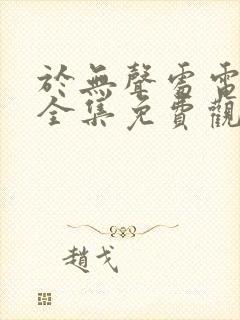 於無聲雷電
全集免費觀
趙戈